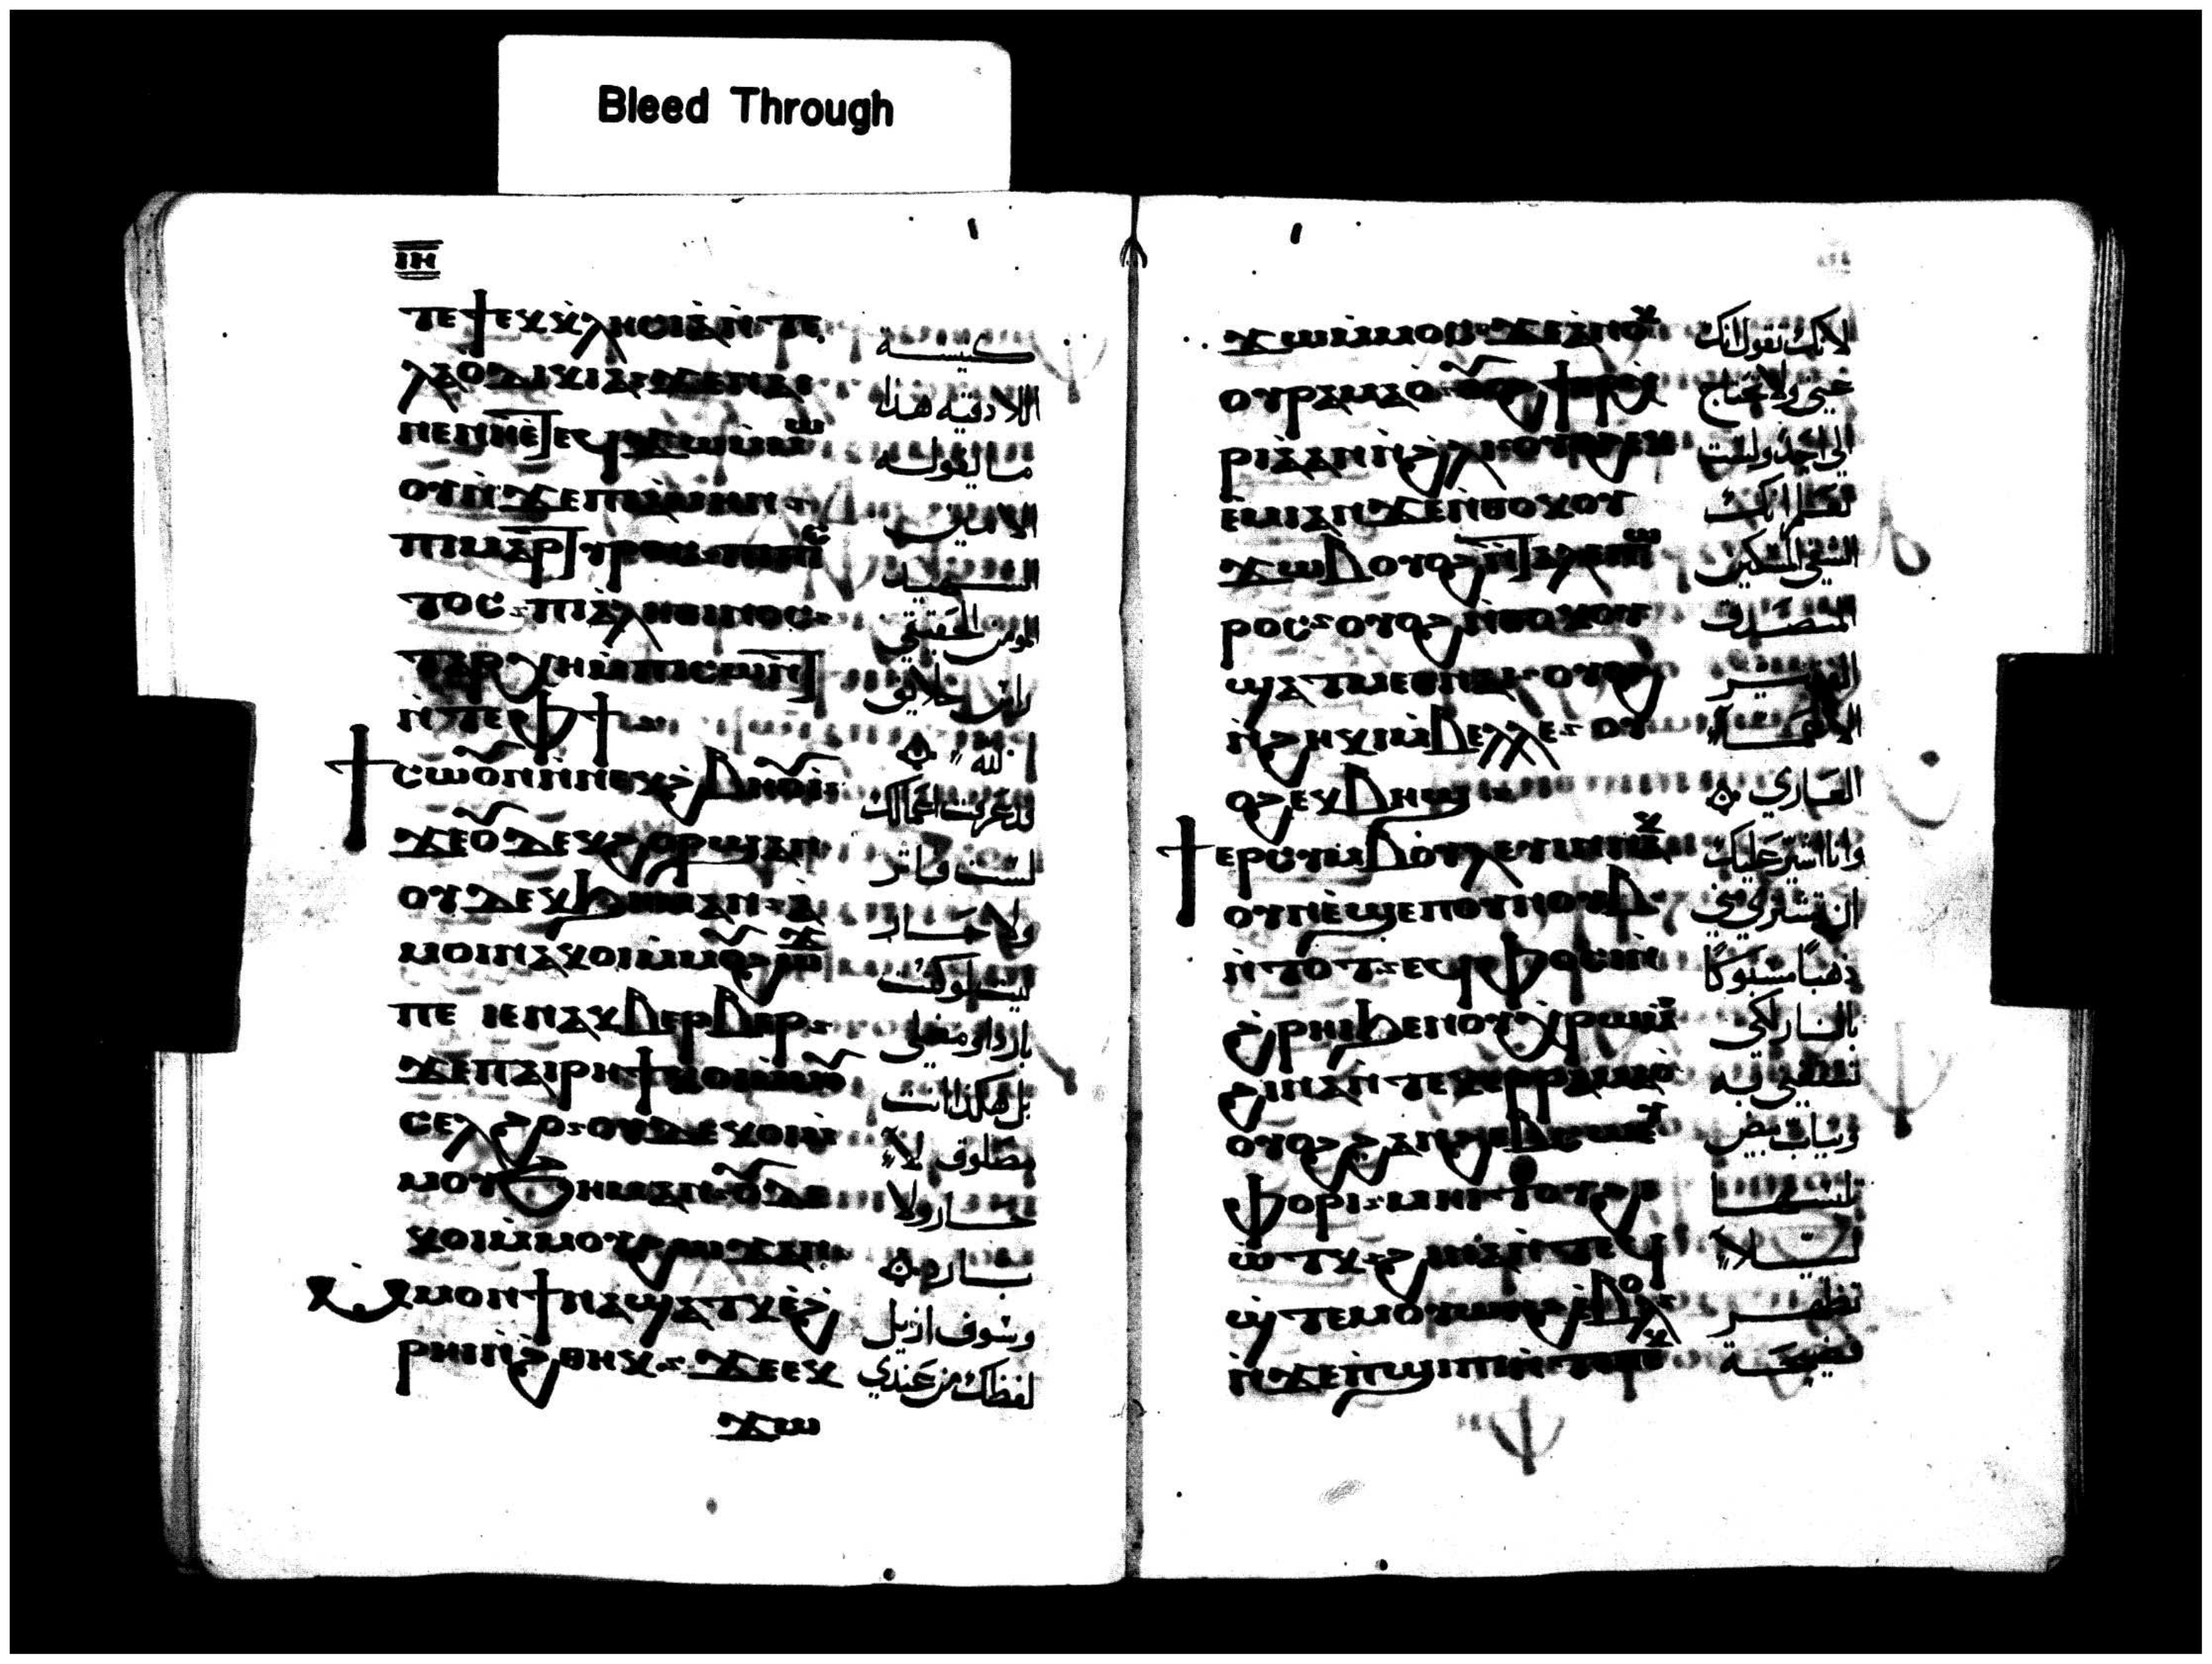 Bleed Through
ⲓⲏ
ⲧⲉϯⲉⲕⲕⲗⲏⲥⲓⲁ ⲛⲧⲉ
كنيسة
ⲗⲁⲟⲇⲓⲕⲓⲁ ϫⲉ ⲛⲁⲓ
اللادقيه هذا
ⲛⲉ ⲛⲏ ⲉⲧⲉϥϫⲱ ⲙⲙⲱ
ما يقوله
ⲟⲩ ⲛϫⲉ ⲡⲓⲁⲙⲏⲛ
الامين
ⲡⲓⲙⲁⲣⲧⲩⲣⲟⲥ ⲡⲓⲡⲓⲥ
الشهيد
ⲧⲟⲥ ⲡⲓⲁⲗⲏⲑⲓⲛⲟⲥ
المومن الحقيقي
ⲧⲁⲣⲭⲏ ⲙⲡⲓⲥⲱⲛⲧ
راس خلايق
ⲛⲧⲉ ⲫϯ
الله
ϯⲥⲱⲟⲩⲛ ⲛⲛⲉⲕϩⲃⲏⲟⲩⲓ
قد عرفت اعمالك
ϫⲉ ⲟⲩⲇⲉ ⲕϩⲟⲣϣ ⲁⲛ
لست فاتر
ⲟⲩⲇⲉ ⲕϧⲏⲙ ⲁⲛ ⲁ
ولا حار
ⲙⲟⲓ ⲛⲁⲕⲟⲓ ⲙⲙⲟⲩϩⲱϫ
ليت لو كنت
ⲡⲉ ⲓⲉ ⲛⲁⲕⲃⲉⲣⲃⲉⲣ
بارد او مغلي
ϫⲉ ⲡⲁⲓⲣⲏϯ ⲕⲟⲓ ⲙⲙⲟⲩ
بل هكذا انت
ⲥⲉⲗϩⲟ ⲟⲩⲇⲉ ⲕⲟⲓ ⲙ
مصلوق لا
ⲙⲟⲩϧⲏⲙ ⲁⲛ ⲟⲩⲇⲉ
حار ولا
ⲕⲟⲓ ⲙⲙⲟⲩϩⲱϫ ⲁⲛ
بارد
ⲙⲙⲟⲛ ϯⲛⲁϣⲁⲧⲕ ⲉϩ
وسوف ازيل
ⲣⲏⲓ ⲛϩⲑⲏⲕ ϫⲉ ⲉⲕ
لفظك من عندي
ϫⲱ
ϫⲱ ⲙⲙⲟⲥ ϫⲉ ⲁⲛⲟⲕ
لانك تقول انك
ⲟⲩⲣⲁⲙⲁⲟ ⲟⲩⲟϩ ϯⲉⲣⲭ
غني ولا تحتاج
ⲣⲓⲁ ⲁⲛ ⲛϩⲗⲓ ⲟⲩⲟϩ ⲕ
الي احد ولست
ⲉⲙⲓ ⲁⲛ ϫⲉ ⲛⲑⲟⲕ ⲟⲩ
تعلم انك
ϫⲱⲃ ⲟⲩⲟϩ ⲛⲧⲁⲗⲉⲡⲱ
الشقي المسكين
ⲣⲟⲥ ⲟⲩⲟϩ ⲛⲑⲟⲕ ⲟⲩ
المتصدق
ϣⲁⲧⲙⲉⲑⲛⲁⲓ ⲟⲩⲟϩ
ⲛϩⲏⲕⲓ ⲙⲃⲉⲗⲗⲉ ⲟⲩ
ⲟϩ ⲉⲕⲃⲏϣ
العاري
ϯⲉⲣⲥⲩⲙⲃⲟⲩⲗⲉⲩⲓⲛ ⲛⲁⲕ
وانا اشير عليك
ⲟⲩⲛ ⲉϣⲉⲡ ⲟⲩⲛⲟⲩⲃ
ان تشتري مني
ⲛⲧⲟⲧ ⲉϥⲫⲟⲥⲓ
ذهبا مسبوكا
ϩⲣⲏⲓ ϧⲉⲛ ⲟⲩⲭⲣⲱⲙ
بالنار لكي
ϩⲓⲛⲁ ⲛⲧⲉⲕⲉⲣⲣⲁⲙⲁⲟ
تستغني به
ⲟⲩⲟϩ ϩⲁⲛϩⲃⲱⲥ ⲉⲩ
وثياب بيض
ⲫⲟⲣⲓ ⲙⲙⲏⲓ ⲧⲟⲩϩ
تلبسها
ⲱⲧⲕ ϩⲓⲛⲁ ⲛⲧⲉϥ
ليلا
ϣⲧⲉⲙⲟⲩⲱⲛϩ ⲉⲃⲟⲗ
تظهر
ⲛϫⲉ ⲡϣⲓⲡⲓ ⲛⲧⲉⲕ
فضيحة